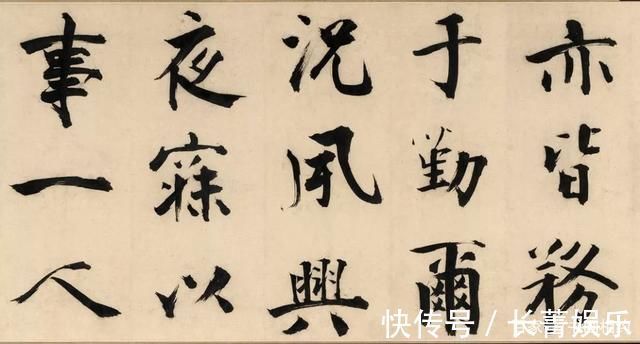 亦皆務
于勤爾
況夙興
夜寐以
事一人
快传号／长菁娱乐